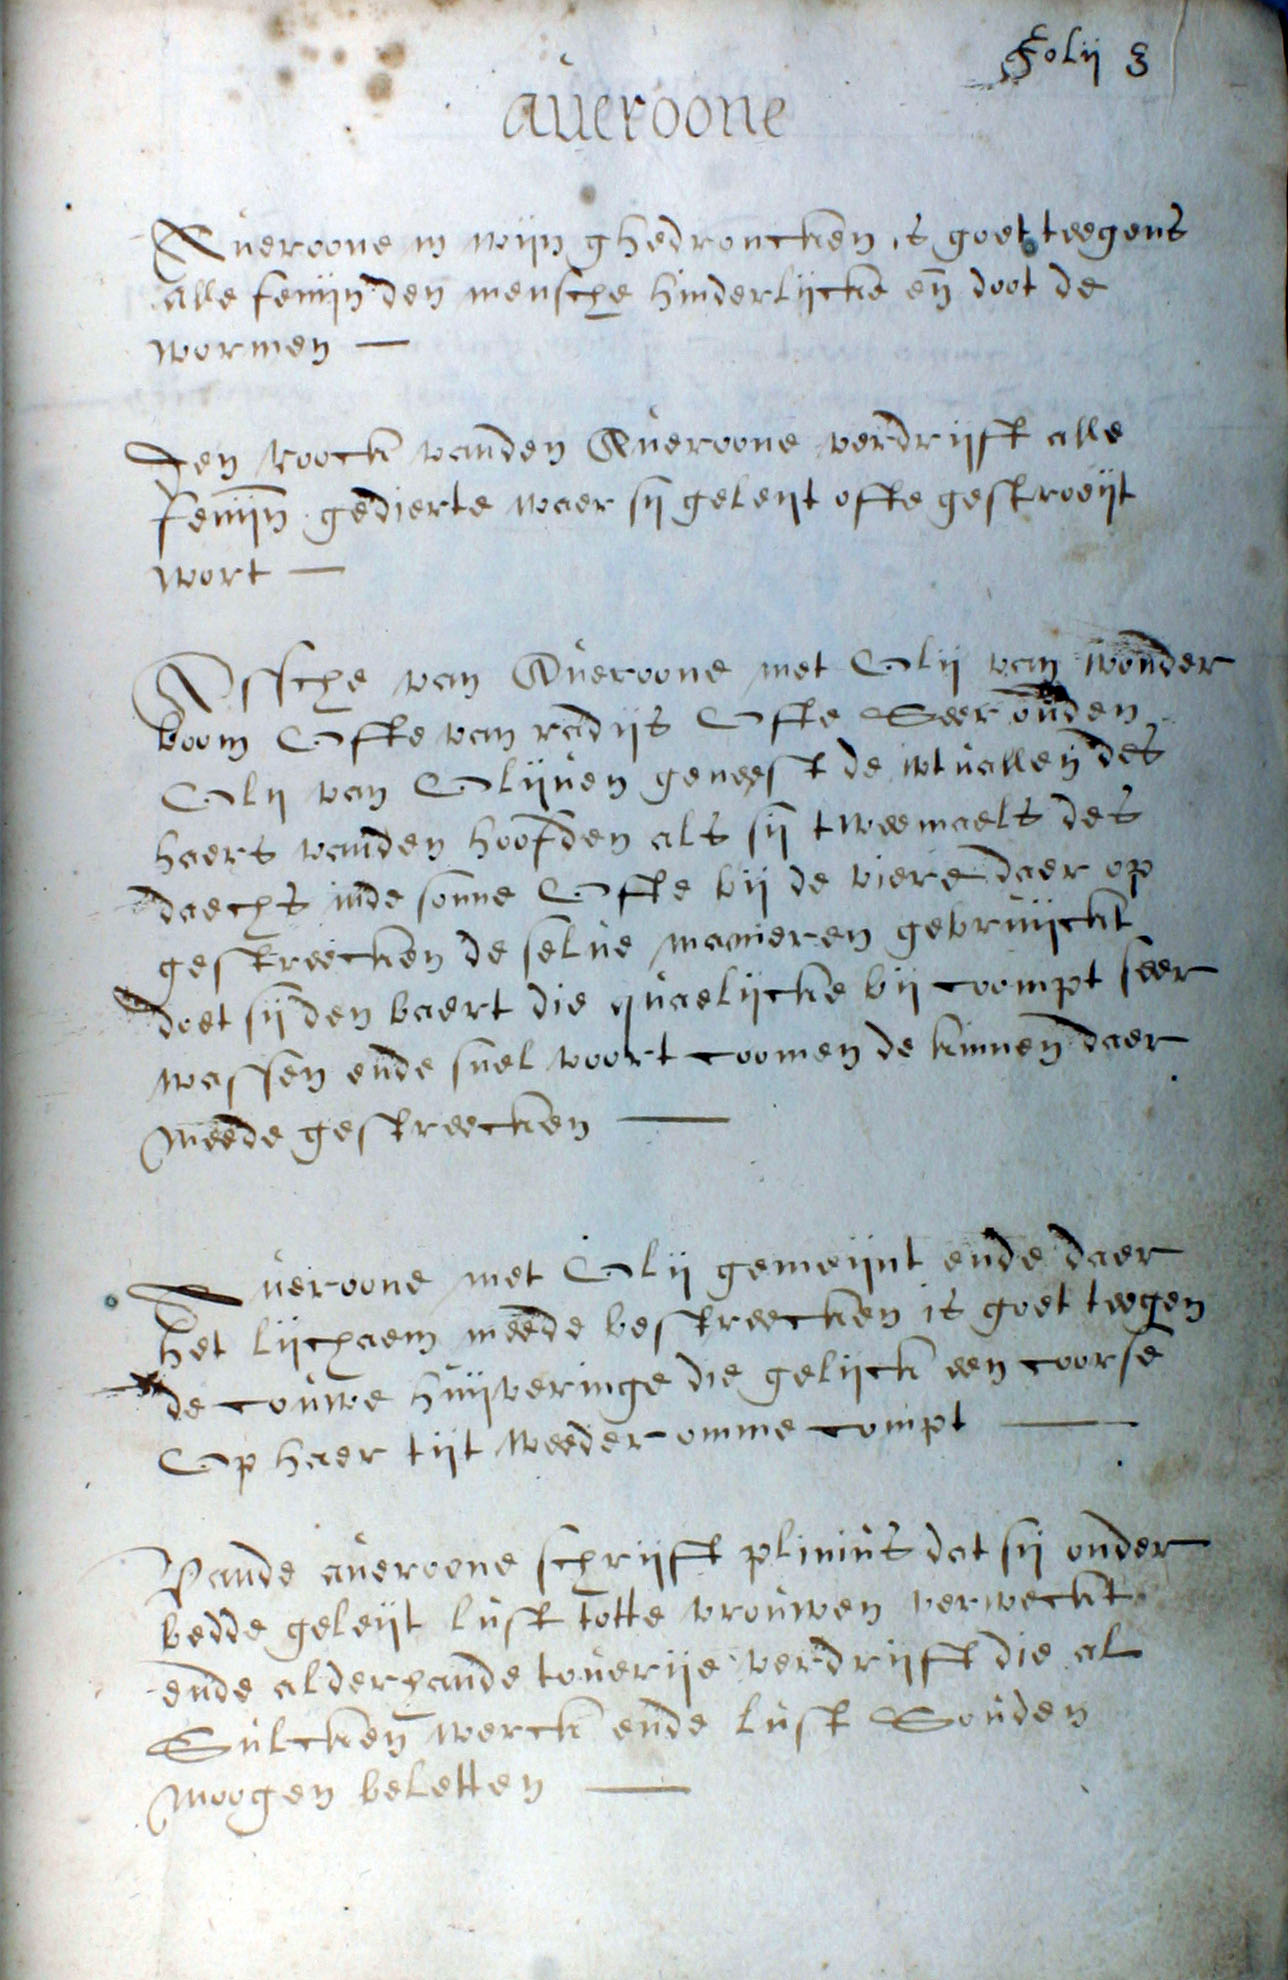 Folij 3
aueroone
Aueroone in wijn ghedroncken is goet teegens
alle fenijn den mensche hinderlijcke en̄ doot de
wormen —
Den roock vanden Aueroone verdrijft alle
fenijn gedierte waer sij geleijt ofte gestroeijt
wort —
Assche van Aueroone met Olij van wonder
boom Ofte van radijs Ofte Seer ouden
Olij van Olijuen geneest de wtuallen des
haers vanden hoofden als sij tweemaels des
daechs inde sonne Ofte bij de viere daer op
gestreecken de selue manieren gebruijckt
doet sij den baert die qualijcke bij coompt seer
wassen ende snel voort coomen de kinnen daer
meede gestreecken —
Aueroone met Olij gemeijnt ende daer
het lijchaem meede bestreecken is goet teegen
de couwe huijveringe die gelijck een coorse
Op haer tijt weeder omme compt —
Vande aueroone schrijft plinius dat sij onder
bedde geleijt lust totte vrouwen verweckt
ende alderhande touerije verdrijft die al
Sulcken werck ende lust Souden
moogen beletten —